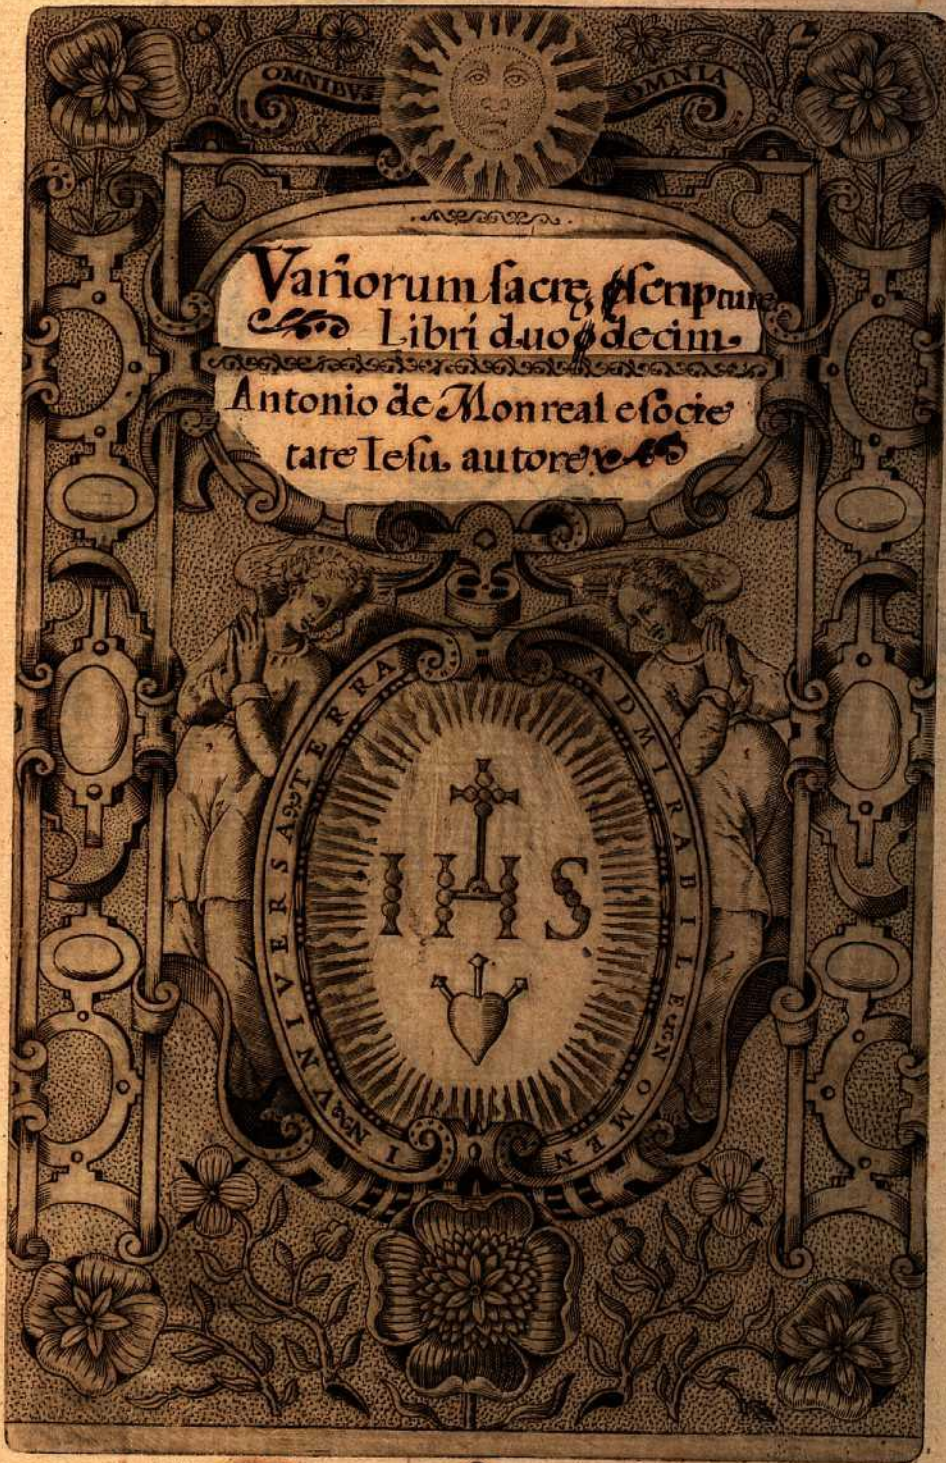 OMNIBVS OMNIA
Variorum sacrę scripturę
Libri duodecim.
Antonio de Monreal e socie
tate Iesu autore.
ADMIRABILE NOMEN
IN VNIVERSA TERRA
IHS